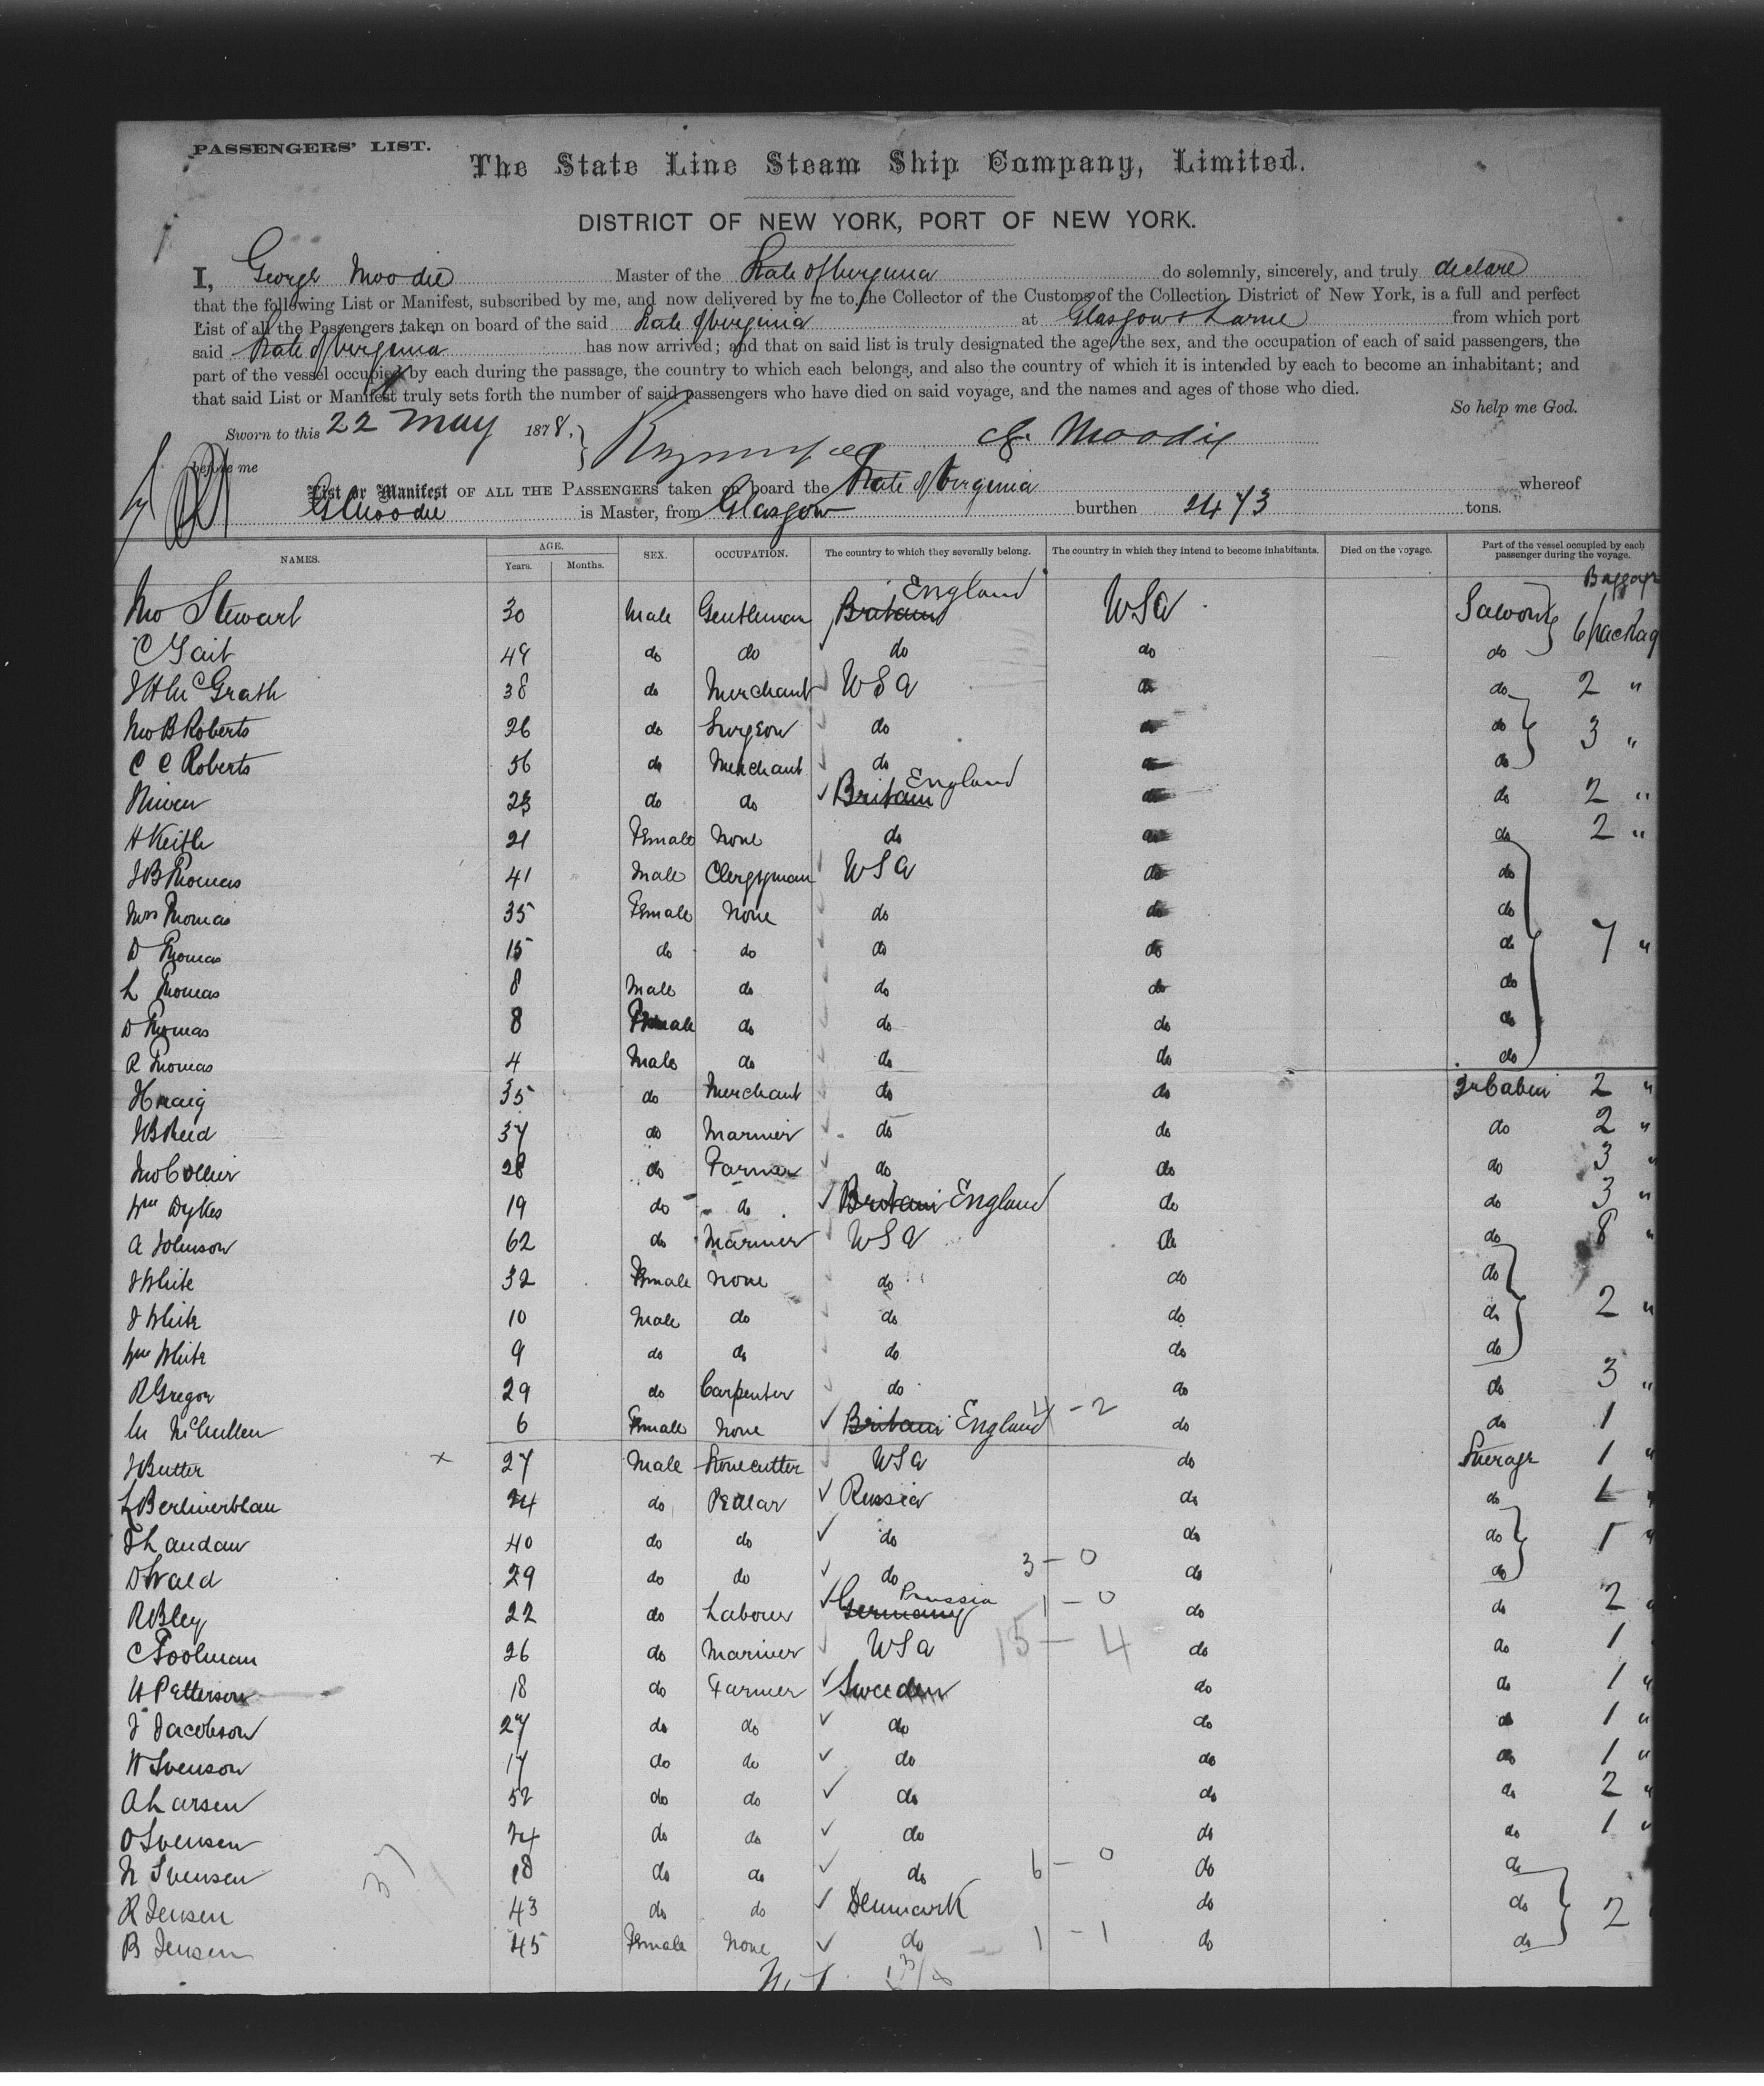 PASSENGERS' LIST.
The State Line Steam Ship Company, Limited.
DISTRICT OF NEW YORK, PORT OF NEW YORK.
I, George Moodie Master of the State of Virginia do solemnly, sincerely, and truly declare
that the following List or Manifest, subscribed by me, and now delivered by me to the Collector of the Customs of the Collection District of New York, is a full and perfect
List of all the Passengers taken on board of the said State of Virginia at Glasgow & Larne from which port
said State of Virginia has now arrived; and that on said list is truly designated the age, the sex, and the occupation of each of said passengers, the
part of the vessel occupied by each during the passage, the country to which each belongs, and also the country of which it is intended by each to become an inhabitant; and
that said List or Manifest truly sets forth the number of said passengers who have died on said voyage, and the names and ages of those who died.
So help me God.
Sworn to this 22 May 1878, G. Moodie
before me
List or Manifest OF ALL THE PASSENGERS taken on board the State of Virginia whereof
G Moodie is Master, from Glasgow burthen 2473 tons.
NAMES. AGE. Years. Months. SEX. OCCUPATION. The country to which they severally belong. The country in which they intend to become inhabitants. Died on the voyage. Part of the vessel occupied by each passenger during the voyage.
Baggage
Jno Stewart 30 Male Gentleman Britain England USA Saloon 6 packag
C Gait 49 do do do do do
J H McGrath 38 do Merchant USA do do 2 "
Jno B Roberts 26 do Surgeon do do do 3 "
C C Roberts 56 do Merchant do do do
Niven 23 do do Britain England do do 2 "
H Keith 21 Female None do do do 2 "
J B Thomas 41 Male Clergyman USA do do
Mrs Thomas 35 Female None do do do
D Thomas 15 do do do do do 7 "
L Thomas 8 Male do do do do
D Thomas 8 Female do do do do
R Thomas 4 Male do do do do
H Craig 35 do Merchant do do 2r Cabin 2 "
J B Reed 37 do Mariner do do do 2 "
Jno Collier 28 do Farmer do do do 3 "
Wm Dykes 19 do do Britain England do do 3 "
A Johnson 62 do Mariner USA do do 8 "
J White 32 Female None do do do
J White 10 Male do do do do 2 "
Wm White 9 do do do do do
R Gregor 29 do Carpenter do do do 3 "
M McMullen 6 Female None Britain England 4 - 2 do do 1
J Butter x 27 Male Stonecutter USA do Steerage 1 "
L Berlinerblau 24 do Pedlar Russia do do 1 "
J Landau 40 do do do do do 1 "
D Wald 29 do do do 3 - 0 do do
R Bley 22 do Labour Germany Prussia 1 - 0 do do 2 "
C Poolman 26 do Mariner USA 15 - 4 do do 1
H Petterson 18 do Farmer Sweden do do 1 "
J Jacobson 27 do do do do do 1 "
N Svenson 17 do do do do do 1 "
A Larsen 52 do do do do do 2 "
O Svensen 24 do do do do do 1 "
N Svensen 18 do do do 6 - 0 do do
R Jensen 43 do do Denmark do do 2
B Jensen 45 Female None do 1 - 1 do do